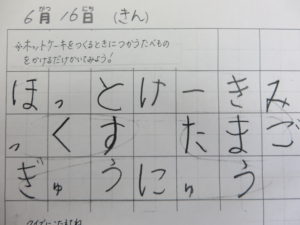 6月16日(きん)
がつ にち
※ホットケーキをつくるときにつかうたべもの
をかけるだけかいてみよう!
ほっとけーきみ
っくすたまご
ぎゅうにゅう